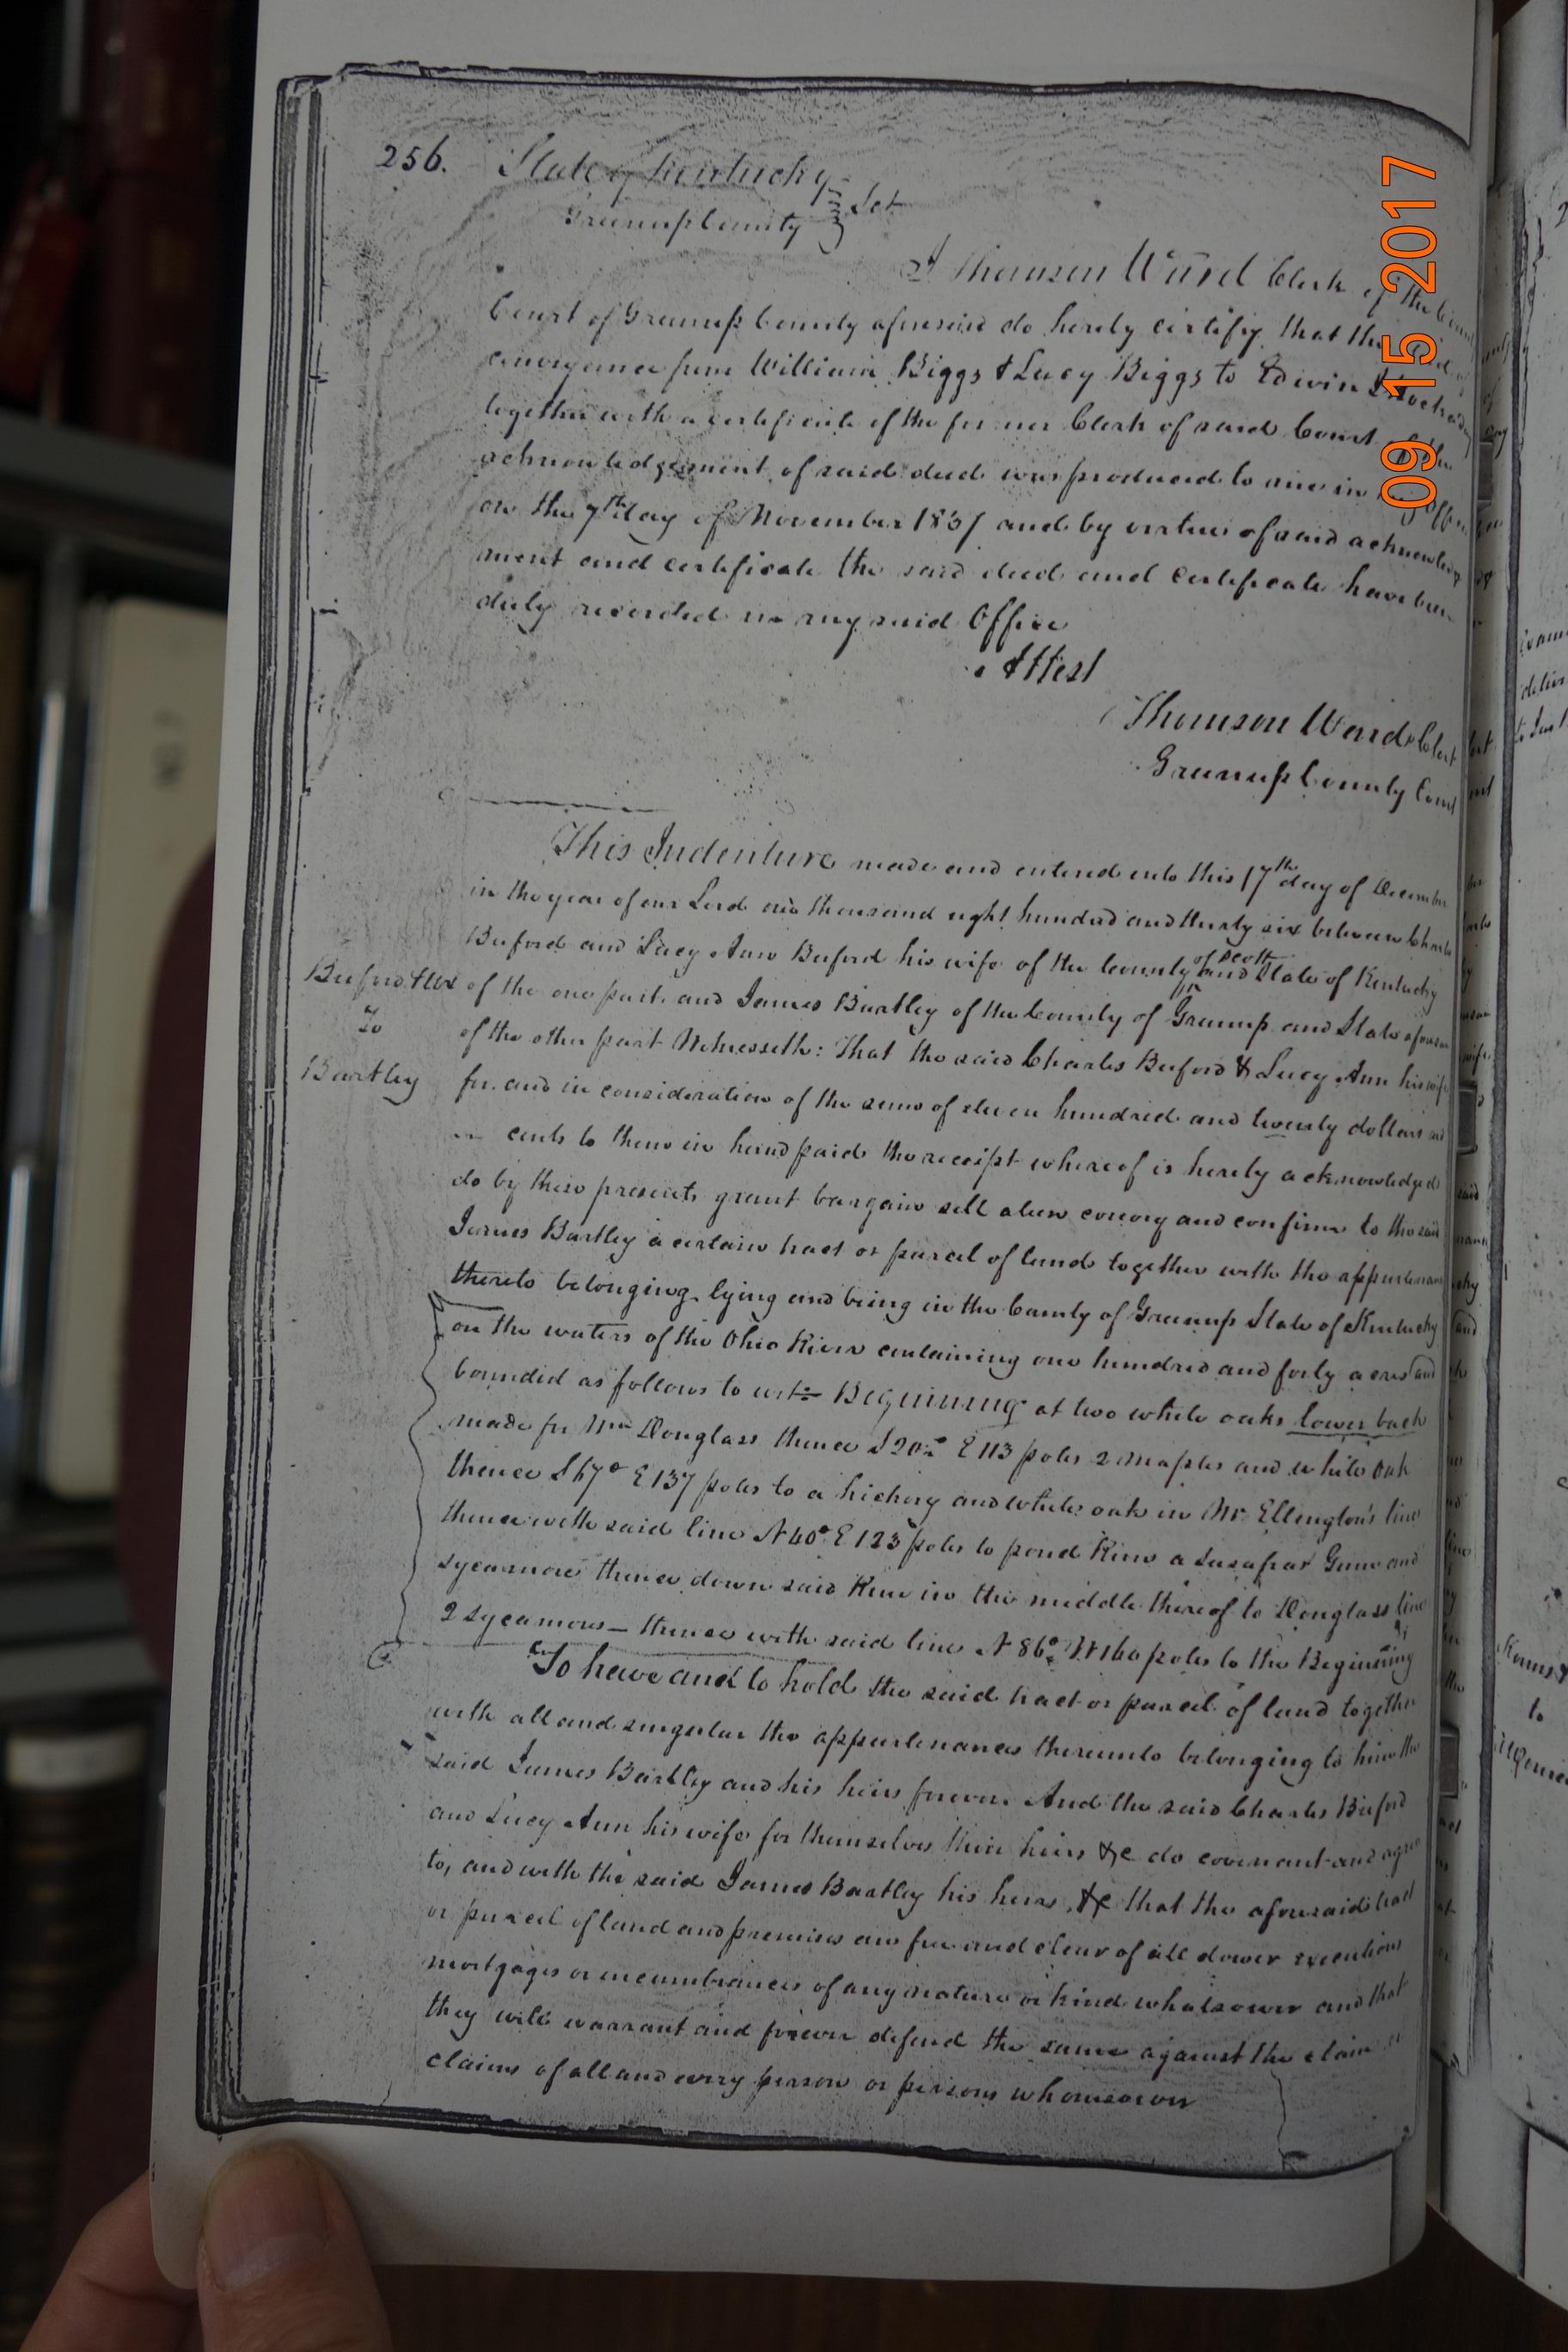 256. State of Kentucky
Greenup County Sct
I Thomson Ward Clerk of the
Court of Greenup County aforesaid do hereby certify that the
conveyance from William Biggs & Lucy Biggs to Edwin
together with a certificate of the former Clerk of said Court
acknowledgement of said deed was produced to me in
on the 7th day of November 1837 and by virtue of said acknowledg
ment and certificate the said deed and certificate have been
duly recorded in my said Office
Attest
Thomson Ward Clerk
Greenup County Court
This Indenture made and entered into this 17th day of December
in the year of our Lord one thousand eight hundred and thirty six between Charles
Buford and Lucy Ann Buford his wife of the County of Scott and State of Kentucky
Buford & Ux
To
Bartley
of the one part and James Bartley of the County of Greenup and State aforesaid
of the other part Witnesseth: That the said Charles Buford & Lucy Ann his wife
for and in consideration of the sum of eleven hundred and twenty dollars and
cents to them in hand paid the receipt whereof is hereby acknowledged
do by these presents grant bargain sell alien convey and confirm to the said
James Bartley a certain tract or parcel of land together with the appurtenances
thereto belonging lying and being in the County of Greenup State of Kentucky
on the waters of the Ohio River containing one hundred and forty acres and
bounded as follows to wit:- Beginning at two white oaks lower back
made for Wm Douglass thence S 20° E 113 poles 2 maples and white oak
thence S 67° E 137 poles to a hickory and white oak in Mr Ellington's line
thence with said line N 40° E 123 poles to pond Run a Sasafras Gum and
sycamore thence down said Run in the middle thereof to Douglass line
2 sycamores - thence with said line N 86° W 160 poles to the Begining
To have and to hold the said tract or parcel of land together
with all and singular the appurtenances thereunto belonging to him the
said James Bartley and his heirs forever. And the said Charles Buford
and Lucy Ann his wife for themselves their heirs &c do covenant and agree
to, and with the said James Bartley his heirs &c that the aforesaid tract
or parcel of land and premises are free and clear of all dower executions
mortgages or incumbrances of any nature or kind whatsoever and that
they will warrant and forever defend the same against the claim or
claims of all and every person or persons whomsoever
09 15 2017